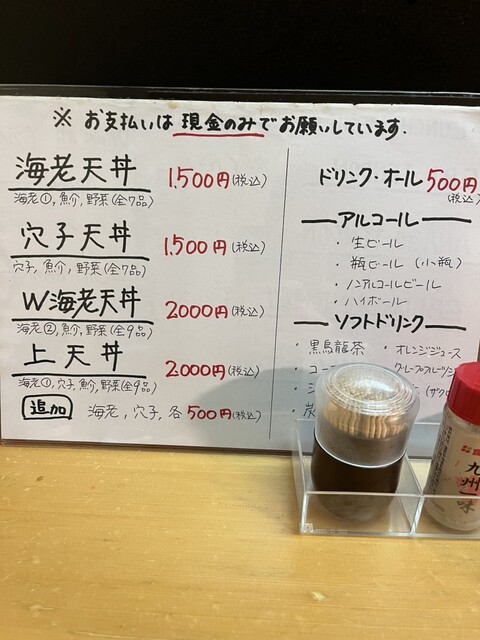 ※ お支払いは 現金のみでお願いしています.
海老天丼 1,500円(税込)
海老①, 魚介, 野菜(全7品)
穴子天丼 1,500円(税込)
穴子, 魚介, 野菜(全7品)
W海老天丼 2000円(税込)
海老②, 魚介, 野菜(全9品)
上天丼 2,000円(税込)
海老①, 穴子, 魚介, 野菜(全9品)
追加 海老, 穴子, 各500円(税込)
ドリンク・オール500円
(税込)
アルコール
・生ビール
・瓶ビール (小瓶)
・ノンアルコールビール
・ハイボール
ソフトドリンク
・黒烏龍茶 ・オレンジジュース
九州
味